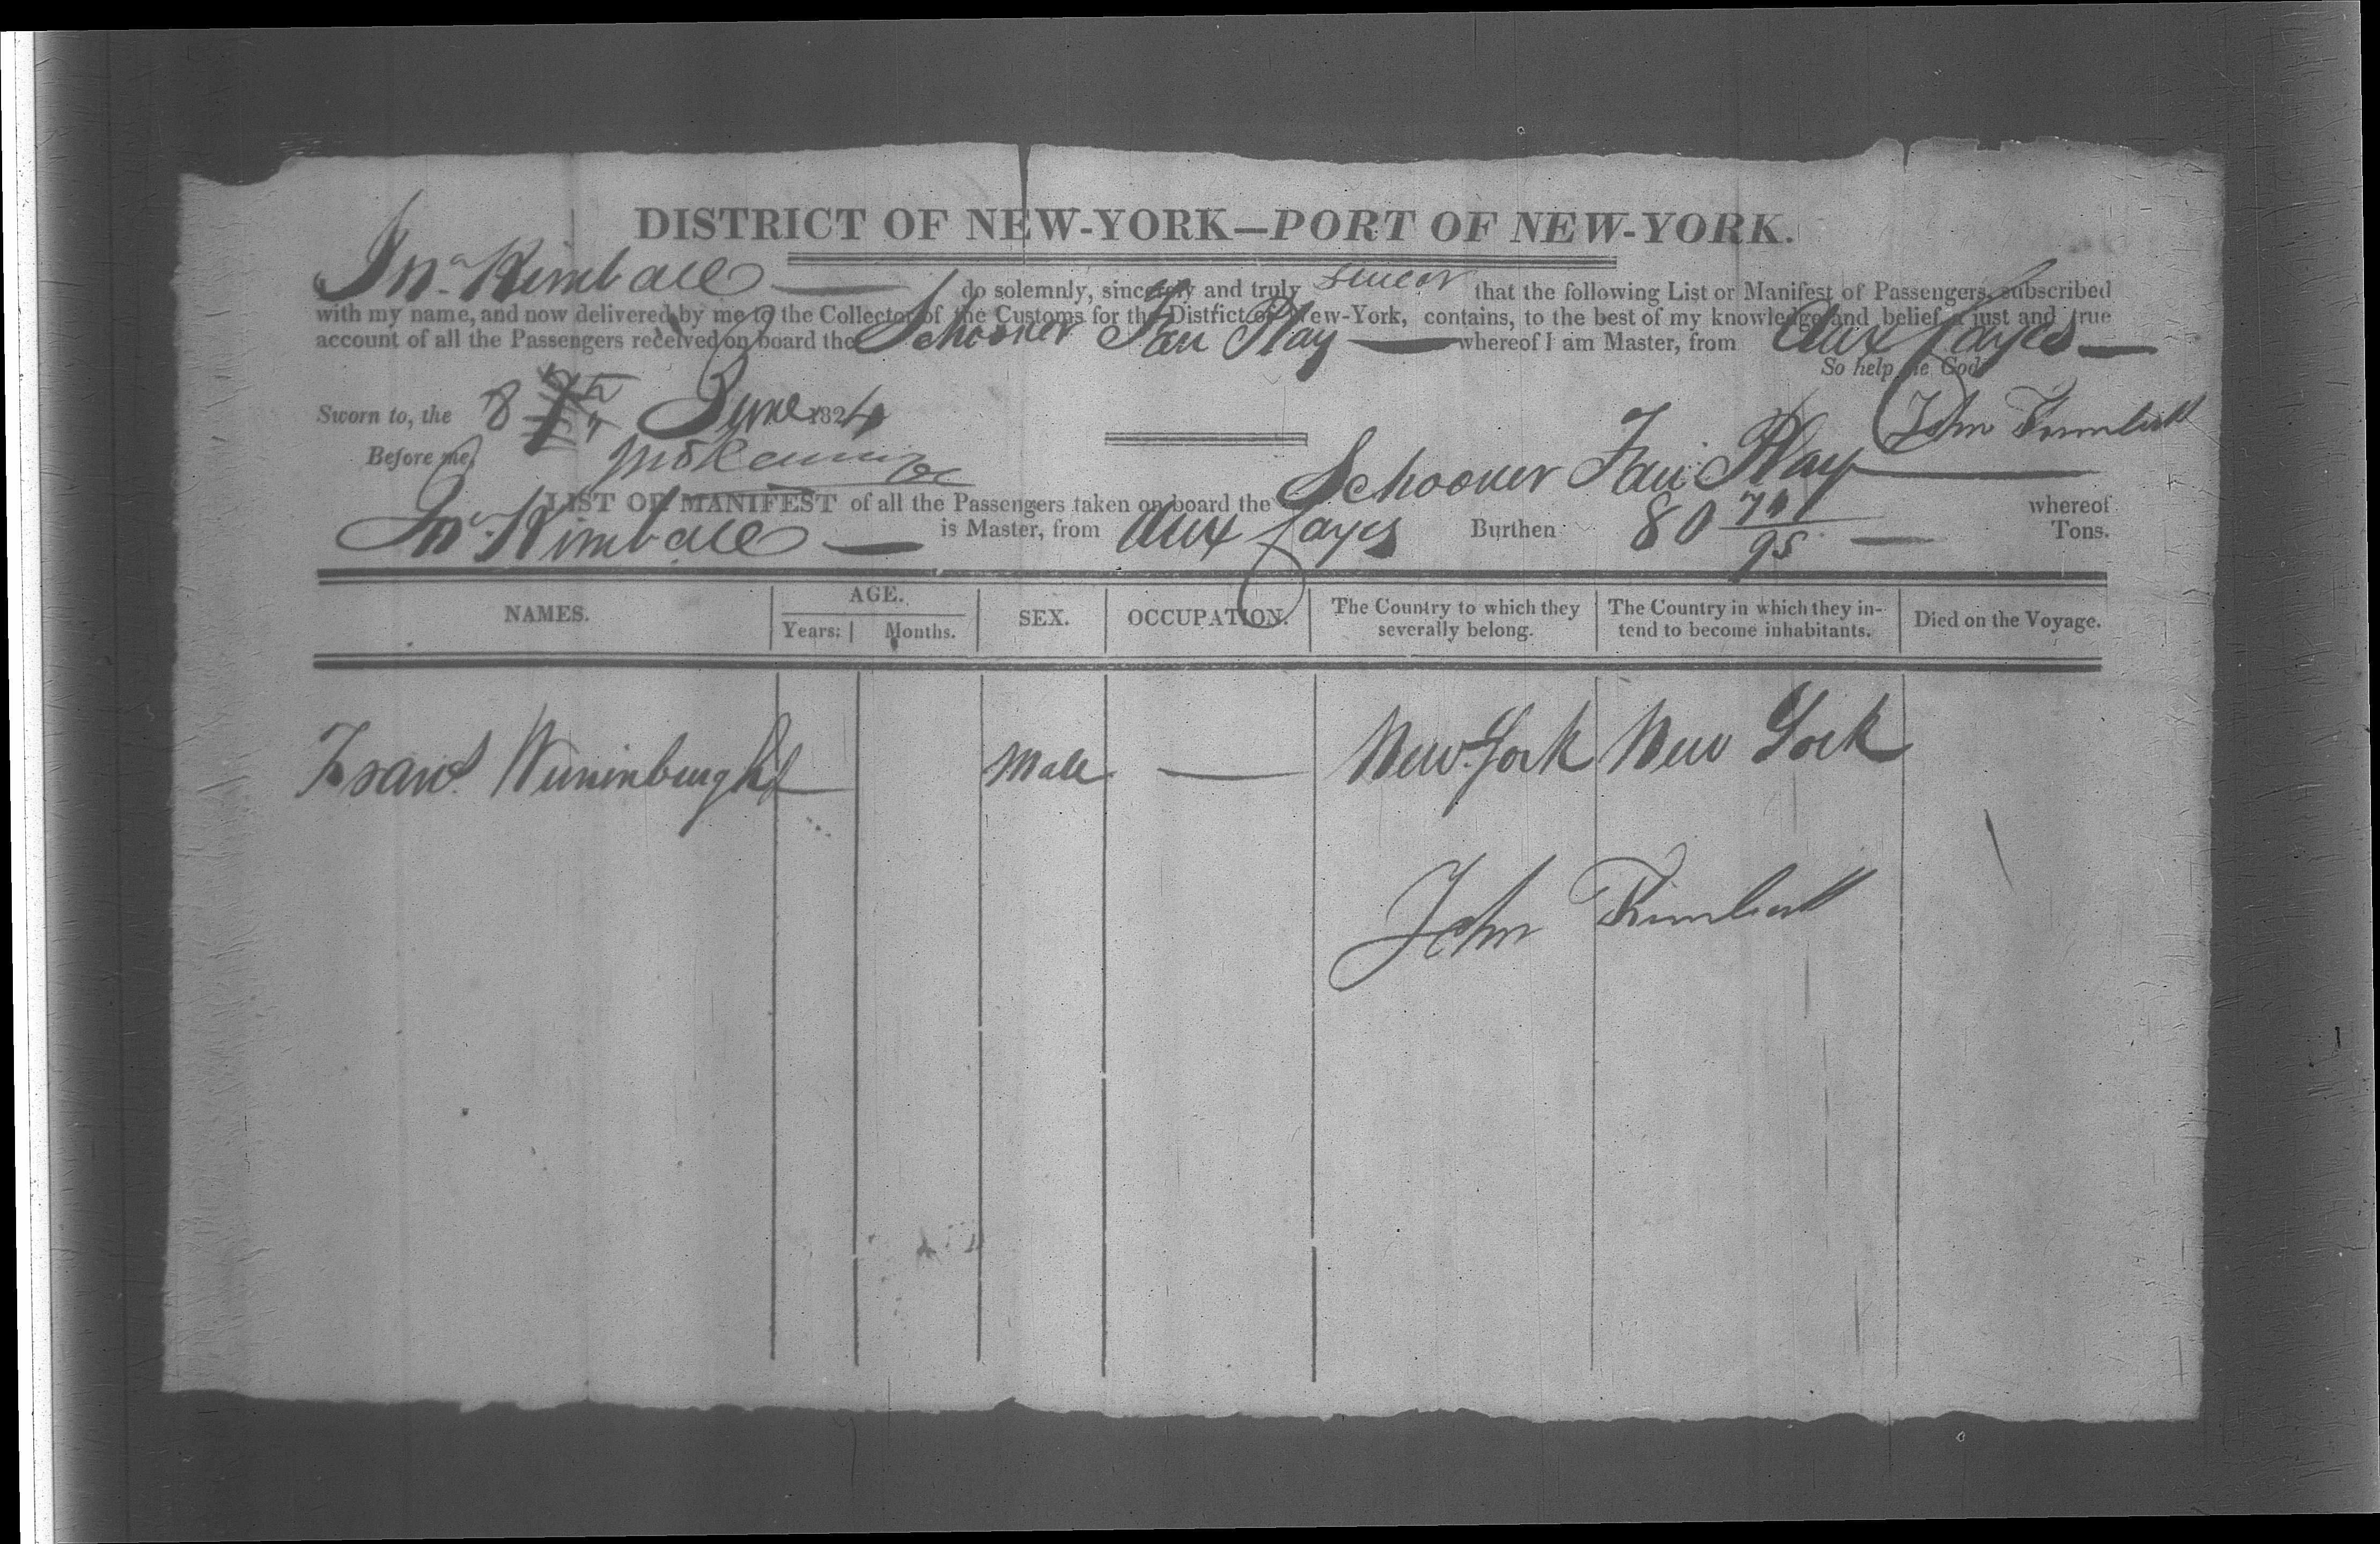 DISTRICT OF NEW-YORK—PORT OF NEW-YORK.
Jno Kimball do solemnly, sincerely and truly swear that the following List or Manifest of Passengers, subscribed
with my name, and now delivered by me to the Collector of the Customs for the District of New-York, contains, to the best of my knowledge and belief, a just and true
account of all the Passengers received on board the Schooner Fair Play whereof I am Master, from Aux Cayes
So help me God.
Sworn to, the 8 June 1824
John Kimball
Before me,
LIST OR MANIFEST of all the Passengers taken on board the Schooner Fair Play whereof
Jno Kimball is Master, from Aux Cayes Burthen 80 70/95 Tons.
NAMES. AGE. Years. Months. SEX. OCCUPATION. The Country to which they severally belong. The Country in which they intend to become inhabitants. Died on the Voyage.
Male — New York New York
John Kimball